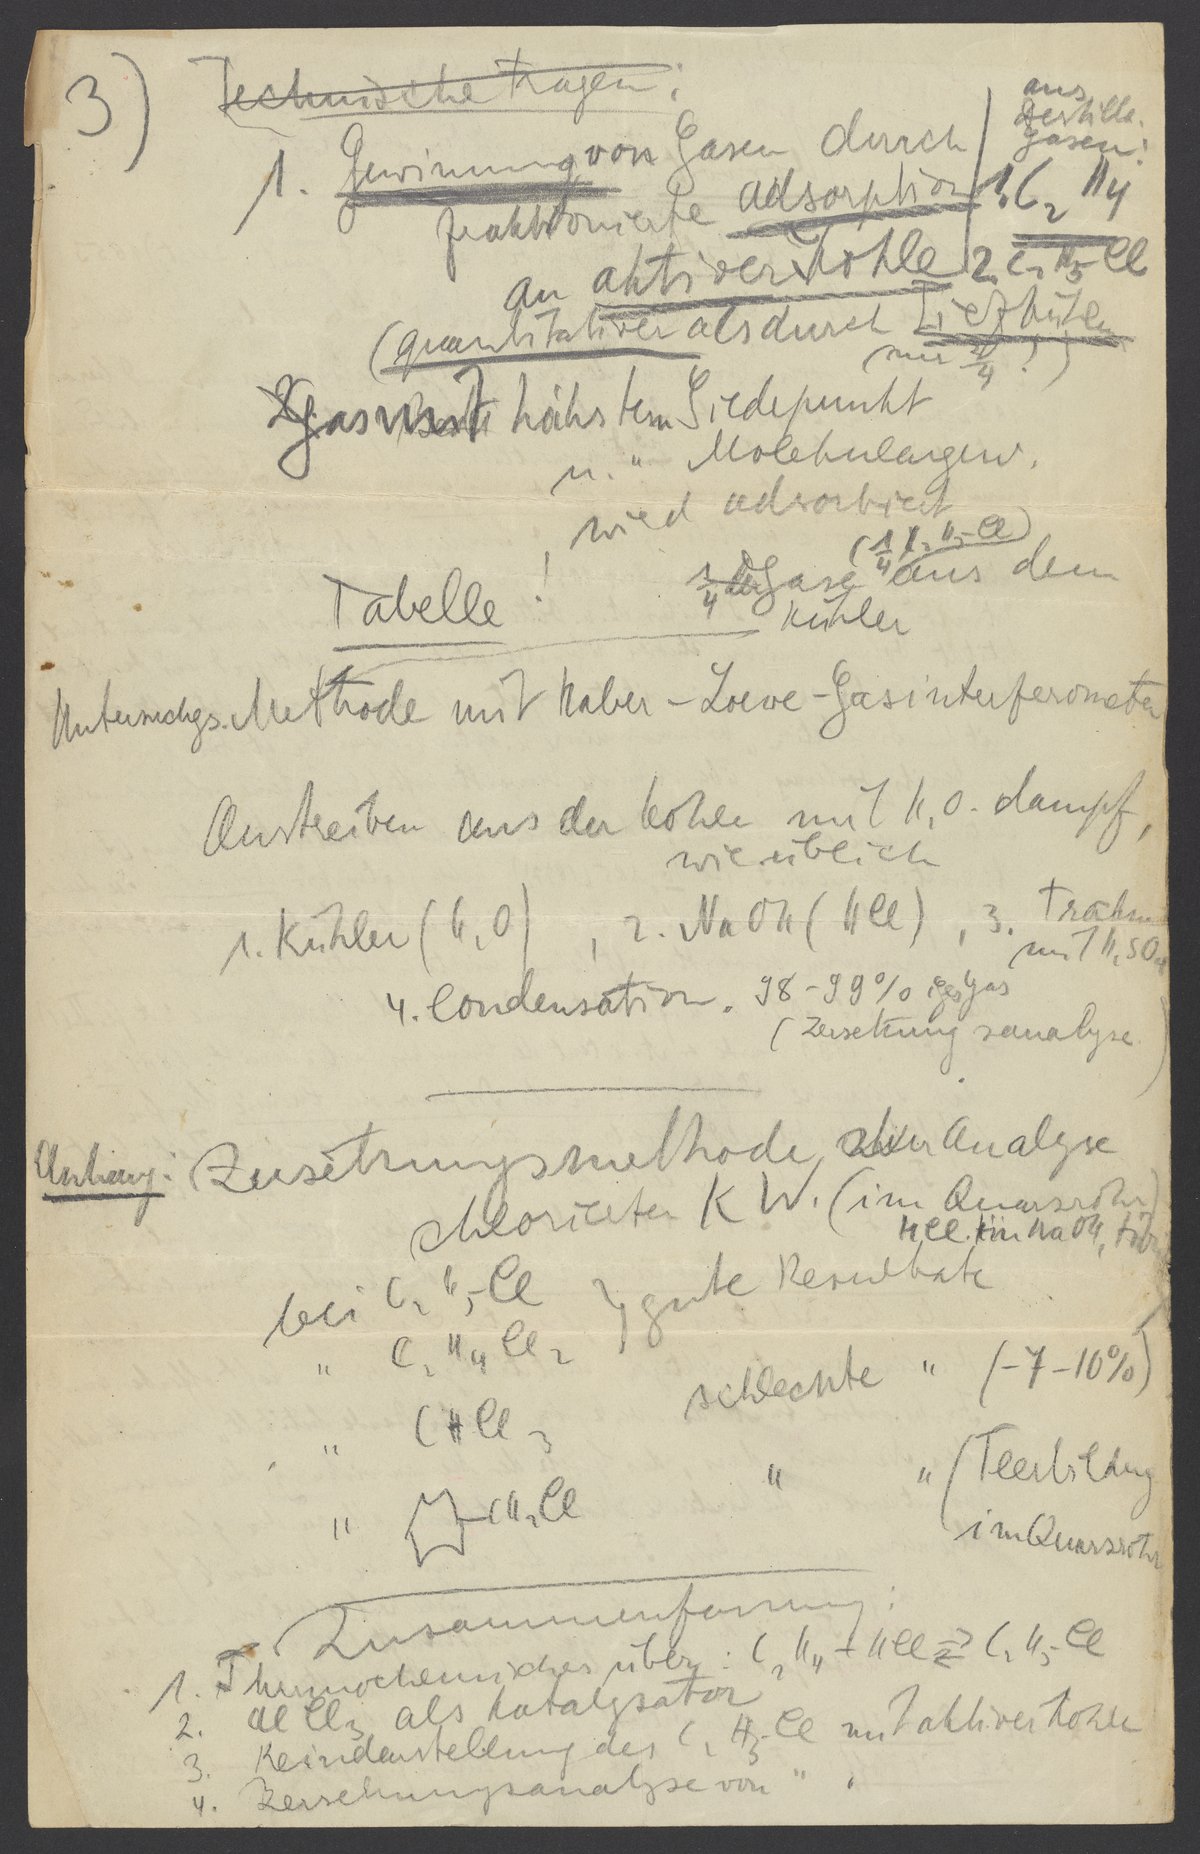 3)
Technische Fragen:
1. Gewinnung von Gasen durch
fraktionierte Adsorption
an aktiver Kohle
(quantitativer als durch Tiefkühlen
nur 3/4!)
aus
Gasen:
1. C2H4
2. C2H5Cl
Gas mit höchstem Siedepunkt
u. " Molekulargew.
wird adsorbiert
Tabelle!
(1/4 C2H5-Cl)
1/4 Gase aus dem
Kühler
Untersuchgs. Methode mit Haber-Loewe-Gasinterferometer
Austreiben aus der Kohle mit H2O-dampf,
wie üblich
1. Kühler (H2O), 2. NaOH (HCl), 3.
mit H2SO4
4. Condensation. 98-99% iges Gas
(Zersetzungsanalyse)
Anhang: Zersetzungsmethode zur Analyse
chlorierter K.W. (im Quarzrohr)
HCl in NaOH,
bei C2H5-Cl } gute Resultate
" C2H4Cl2
" CHCl3 schlechte " (-7-10%)
" CH2Cl " " (Teerbildung
im Quarzrohr
Zusammenfassung:
1. Thermochemisches über: C2H4 + HCl ⇌ C2H5-Cl
2. AlCl3 als Katalysator
3. Reindarstellung des C2H5-Cl mit aktiver Kohle
4. Zersetzungsanalyse von " .